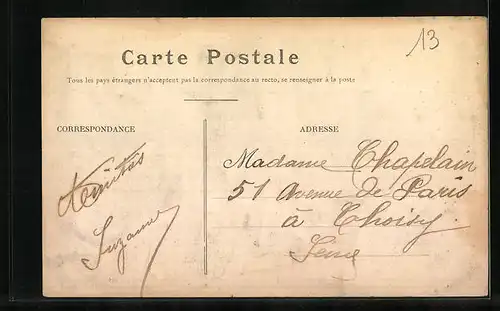 13
Carte Postale
Tous les pays étrangers n'acceptent pas la correspondance au recto, se renseigner à la poste
CORRESPONDANCE
Amitiés
Suzanne
ADRESSE
Madame Chapelain
51 Avenue de Paris
à Choisy
Seine